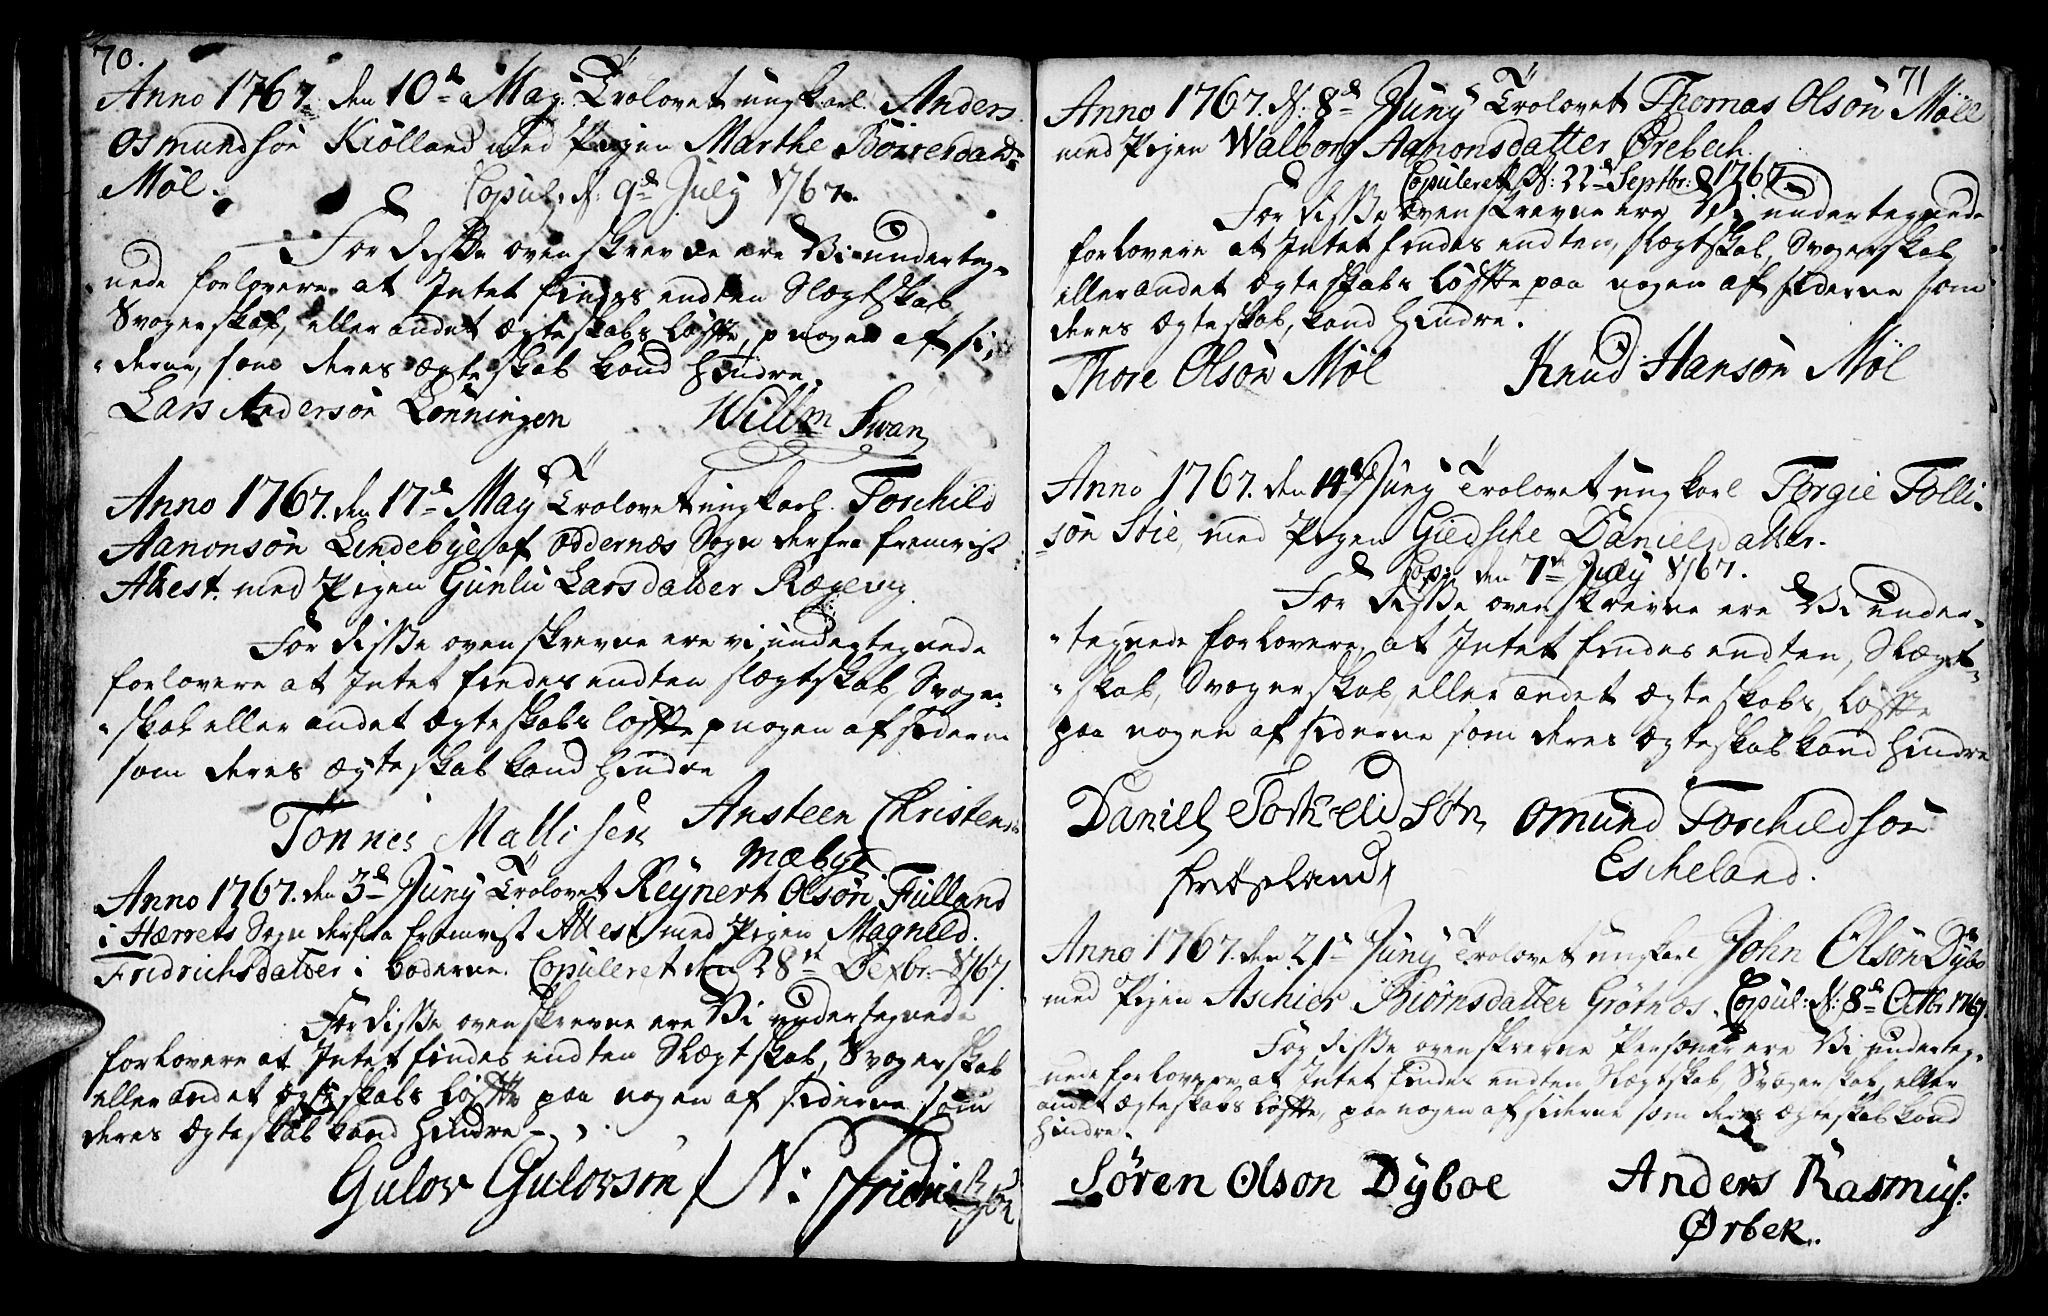 70.
Anno 1767. den 10de May. Trolovet ungkarl Anders
Osmundsøn Kiølland med Pigen Marthe Børresdatt=
Møl.
Copul: d. 9de July 1767.
For disse ovenskrevne ere Vi underteg=
nede forlovere at Intet findes endten Slægtskab
Svogerskab, eller andet Ægteskabs løffte, p nogen af Si=
derne, som deres Ægteskab kand hindre.
Lars Andersøn Lønningen Willm Swan
Anno 1767. den 17de May Trolovet ungkarl. Torchild
Aanonsøn Lindebye af Oddernæs Sogn derfra fremvist
Attest. med Pigen Gunlu Larsdatter Rægevig
For disse ovenskrevne ere vi undertegnede
forlovere at Intet findes endten slægtskab, Svoger=
skab eller andet Ægteskabs løffte p nogen af siderne
som deres Ægteskab kand hindre
Tønnes Mallisen Ansteen Christens
Mæbye
Anno 1767. den 3de Juny Trolovet Reynert Olsøn Fulland
i Hærrets Sogn derfra fremvist Attest med Pigen Magnild
Fridrichsdatter i boderne. Copuleret den 28de Dexbr: 1767.
For disse ovenskrevne ere Vi undertegnede
forlovere at Intet findes endten Slægtskab, Svogerskab
eller andet Ægteskabs løffte paa nogen af siderne som
deres Ægteskab kand hindre
Gulov Gulovsøn N: Fridrichsen
71
Anno 1767. d. 8de Juny Trolovet Thomas Olsøn Møll
med Pigen Walborg Aanonsdatter Ørebech.
Copuleret d: 22de Septbr: 1767.
For disse ovenskrevne ere Vi undertegnede
forlovere at Intet findes endten, slægtskab, Svogerskab,
eller andet Ægteskabs løffte paa nogen af siderne som
deres Ægteskab, kand hindre.
Thore Olsøn Møl Knud Hansøn Møl
Anno 1767. den 14de Juny Trolovet ungkarl Torgie Tolli=
søn Stie, med Pigen Giedsche Danielsdatter.
Cop: den 7de July 1767.
For disse ovenskrevne ere Vi under=
tegnede forlovere, at Intet findes endten, Slægt=
skab, Svogerskab, eller andet Ægteskabs, løfte
paa nogen af siderne som deres Ægteskab kand hindre
Daniel Torkeldsøn Omund Torchildsøn
frøsland Escheland.
Anno 1767. den 21de Juny Trolovet ungkarl John Olsøn Dybo
med Pigen Aschier Biørnsdatter Grøtnes. Copul: d: 8de Octbr 1767.
For disse ovenskrevne Personer ere Vi underteg=
nede forlovere, at Intet findes endten Slægtskab, Svogerskab, eller
andet Ægteskabs løffte, paa nogen af siderne som deres Ægteskab kand
hindre.
Søren Olson Dyboe Anders Rasmus:
Ørbek.